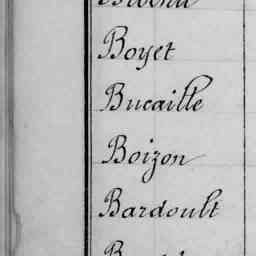 Boyet
Bucaille
Boizon
Bardoult